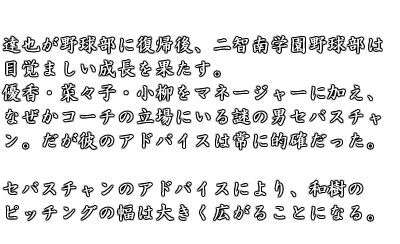 達也が野球部に復帰後、二智南学園野球部は
目覚ましい成長を果たす。
優香・菜々子・小柳をマネージャーに加え、
なぜかコーチの立場にいる謎の男セバスチャ
ン。だが彼のアドバイスは常に的確だった。
セバスチャンのアドバイスにより、和樹の
ピッチングの幅は大きく広がることになる。